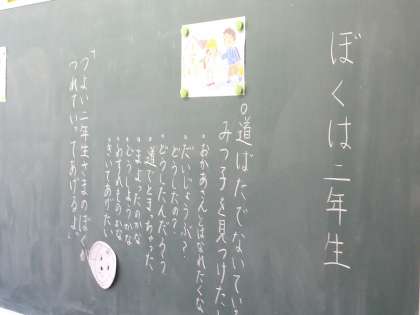 ぼくは二年生
○道ばたでないている
みつ子を見つけた
・おかあさんとはなれたくな
・だいじょうぶ?
どうしたの?
・どうしたんだろう?
・道でとまっちゃった
・まよったのかな
・どうしようかな
・わすれものかな
・きいてあげたい
「つよい二年生さまのぼくが
つれていってあげるよ」